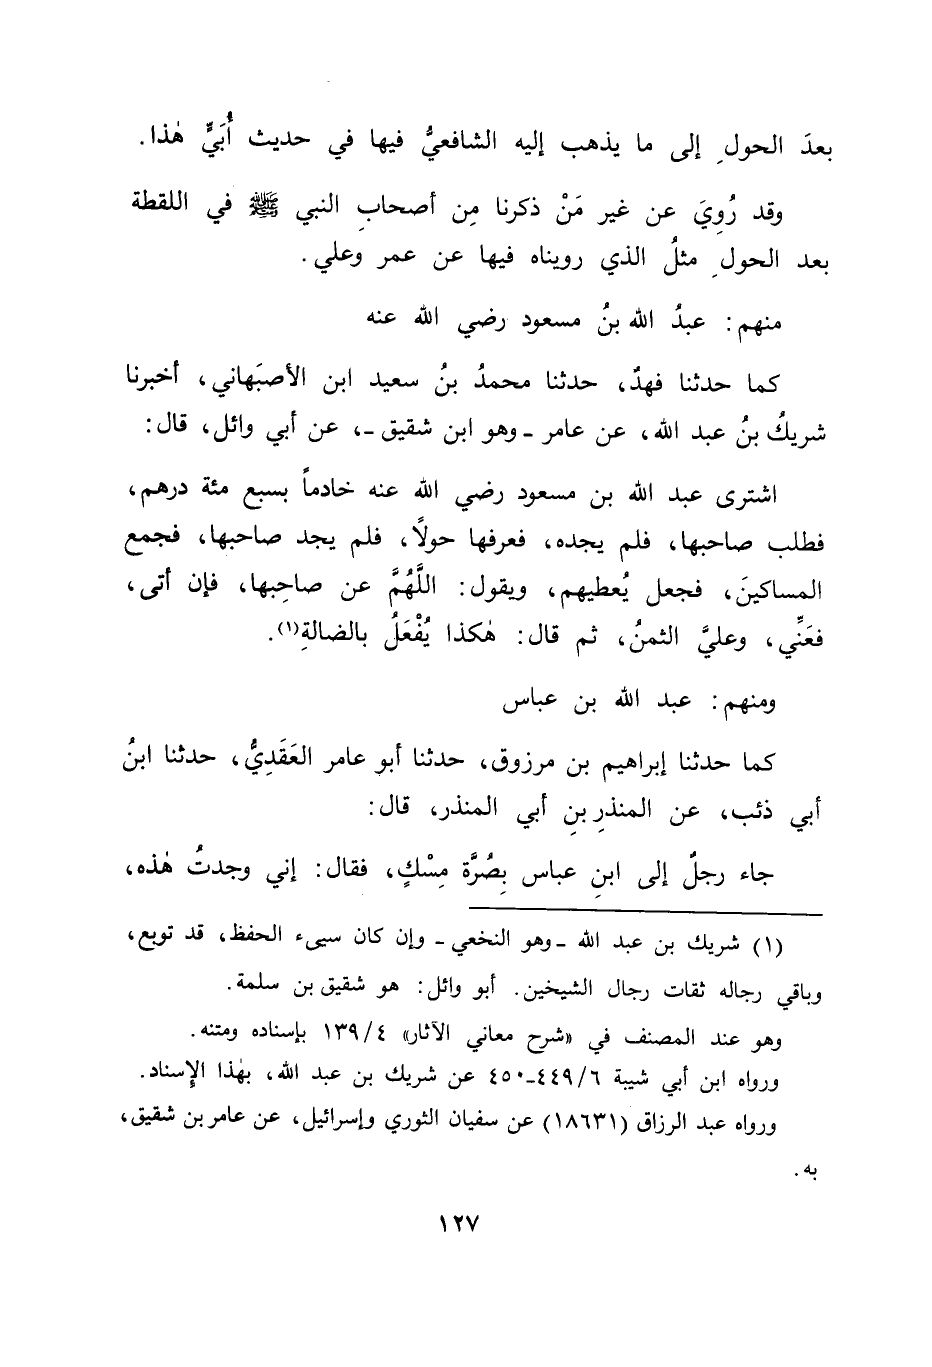 بعدَ الحولِ إلى ما يذهب إليه الشافعيُّ فيها في حديث أُبَيٍّ هٰذا.
وقد رُوِيَ عن غير مَنْ ذكرنا مِن أصحابِ النبي ﷺ في اللقطة
بعد الحولِ مثلُ الذي رويناه فيها عن عمر وعلي.
منهم: عبدُ الله بنُ مسعود رضي الله عنه
كما حدثنا فهدٌ، حدثنا محمدُ بنُ سعيد ابن الأصبَهاني، أخبرنا
شريكُ بنُ عبد الله، عن عامر ـ وهو ابن شقيق ـ، عن أبي وائل، قال:
اشترى عبد الله بن مسعود رضي الله عنه خادماً بسبع مئة درهم،
فطلب صاحبها، فلم يجده، فعرفها حولًا، فلم يجد صاحبها، فجمع
المساكينَ، فجعل يُعطيهم، ويقول: اللَّهُمَّ عن صاحِبها، فإن أتى،
فعَنِّي، وعليَّ الثمنُ، ثم قال: هٰكذا يُفْعَلُ بالضالةِ(١).
ومنهم: عبد الله بن عباس
كما حدثنا إبراهيم بن مرزوق، حدثنا أبو عامر العَقَدِيُّ، حدثنا ابنُ
أبي ذئب، عن المنذرِ بنِ أبي المنذر، قال:
جاء رجلٌ إلى ابنِ عباس بِصُرَّة مِسْكٍ، فقال: إني وجدتُ هٰذه،
(١) شريك بن عبد الله ـ وهو النخعي ـ وإن كان سيىء الحفظ، قد توبع،
وباقي رجاله ثقات رجال الشيخين. أبو وائل: هو شقيق بن سلمة.
وهو عند المصنف في «شرح معاني الآثار» ١٣٩/٤ بإسناده ومتنه.
ورواه ابن أبي شيبة ٤٤٩/٦ـ٤٥٠ عن شريك بن عبد الله، بهٰذا الإسناد.
ورواه عبد الرزاق (١٨٦٣١) عن سفيان الثوري وإسرائيل، عن عامر بن شقيق،
به.
١٢٧